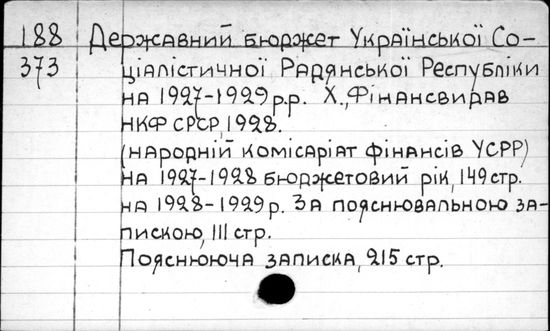 188 Державний бюджет Української Со-
373 ціалістичної Радянської Республіки
на 1927-1929 р.р. Х., Фінансвидав
НКФ СРСР, 1928.
(народній комісаріат фінансів УСРР)
на 1927-1928 бюджетовий рік, 149 стр.
на 1928-1929 р. За пояснювальною за-
пискою, III стр.
Пояснююча записка, 215 стр.